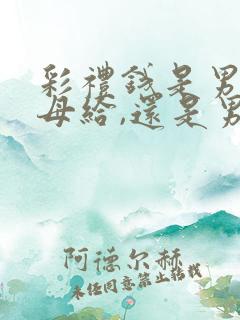 彩禮錢是男
母給,還是男
阿德尔赫
未经同意禁止转载